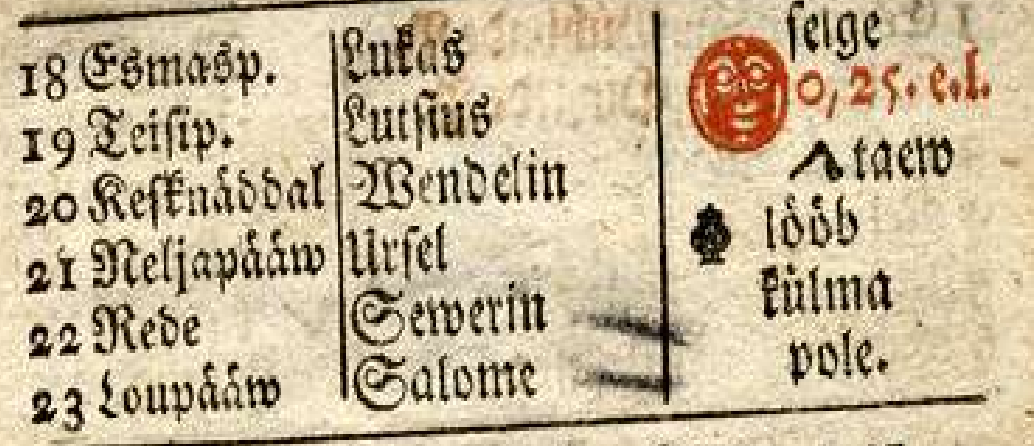 18 Esmasp. Lukas selge
19 Teisip. Lutsius 0, 25. e.l.
20 Kesknäddal Wendelin taew
21 Neljapääw Ursel lööb
22 Rede Sewerin külma
23 Loupääw Salome pole.